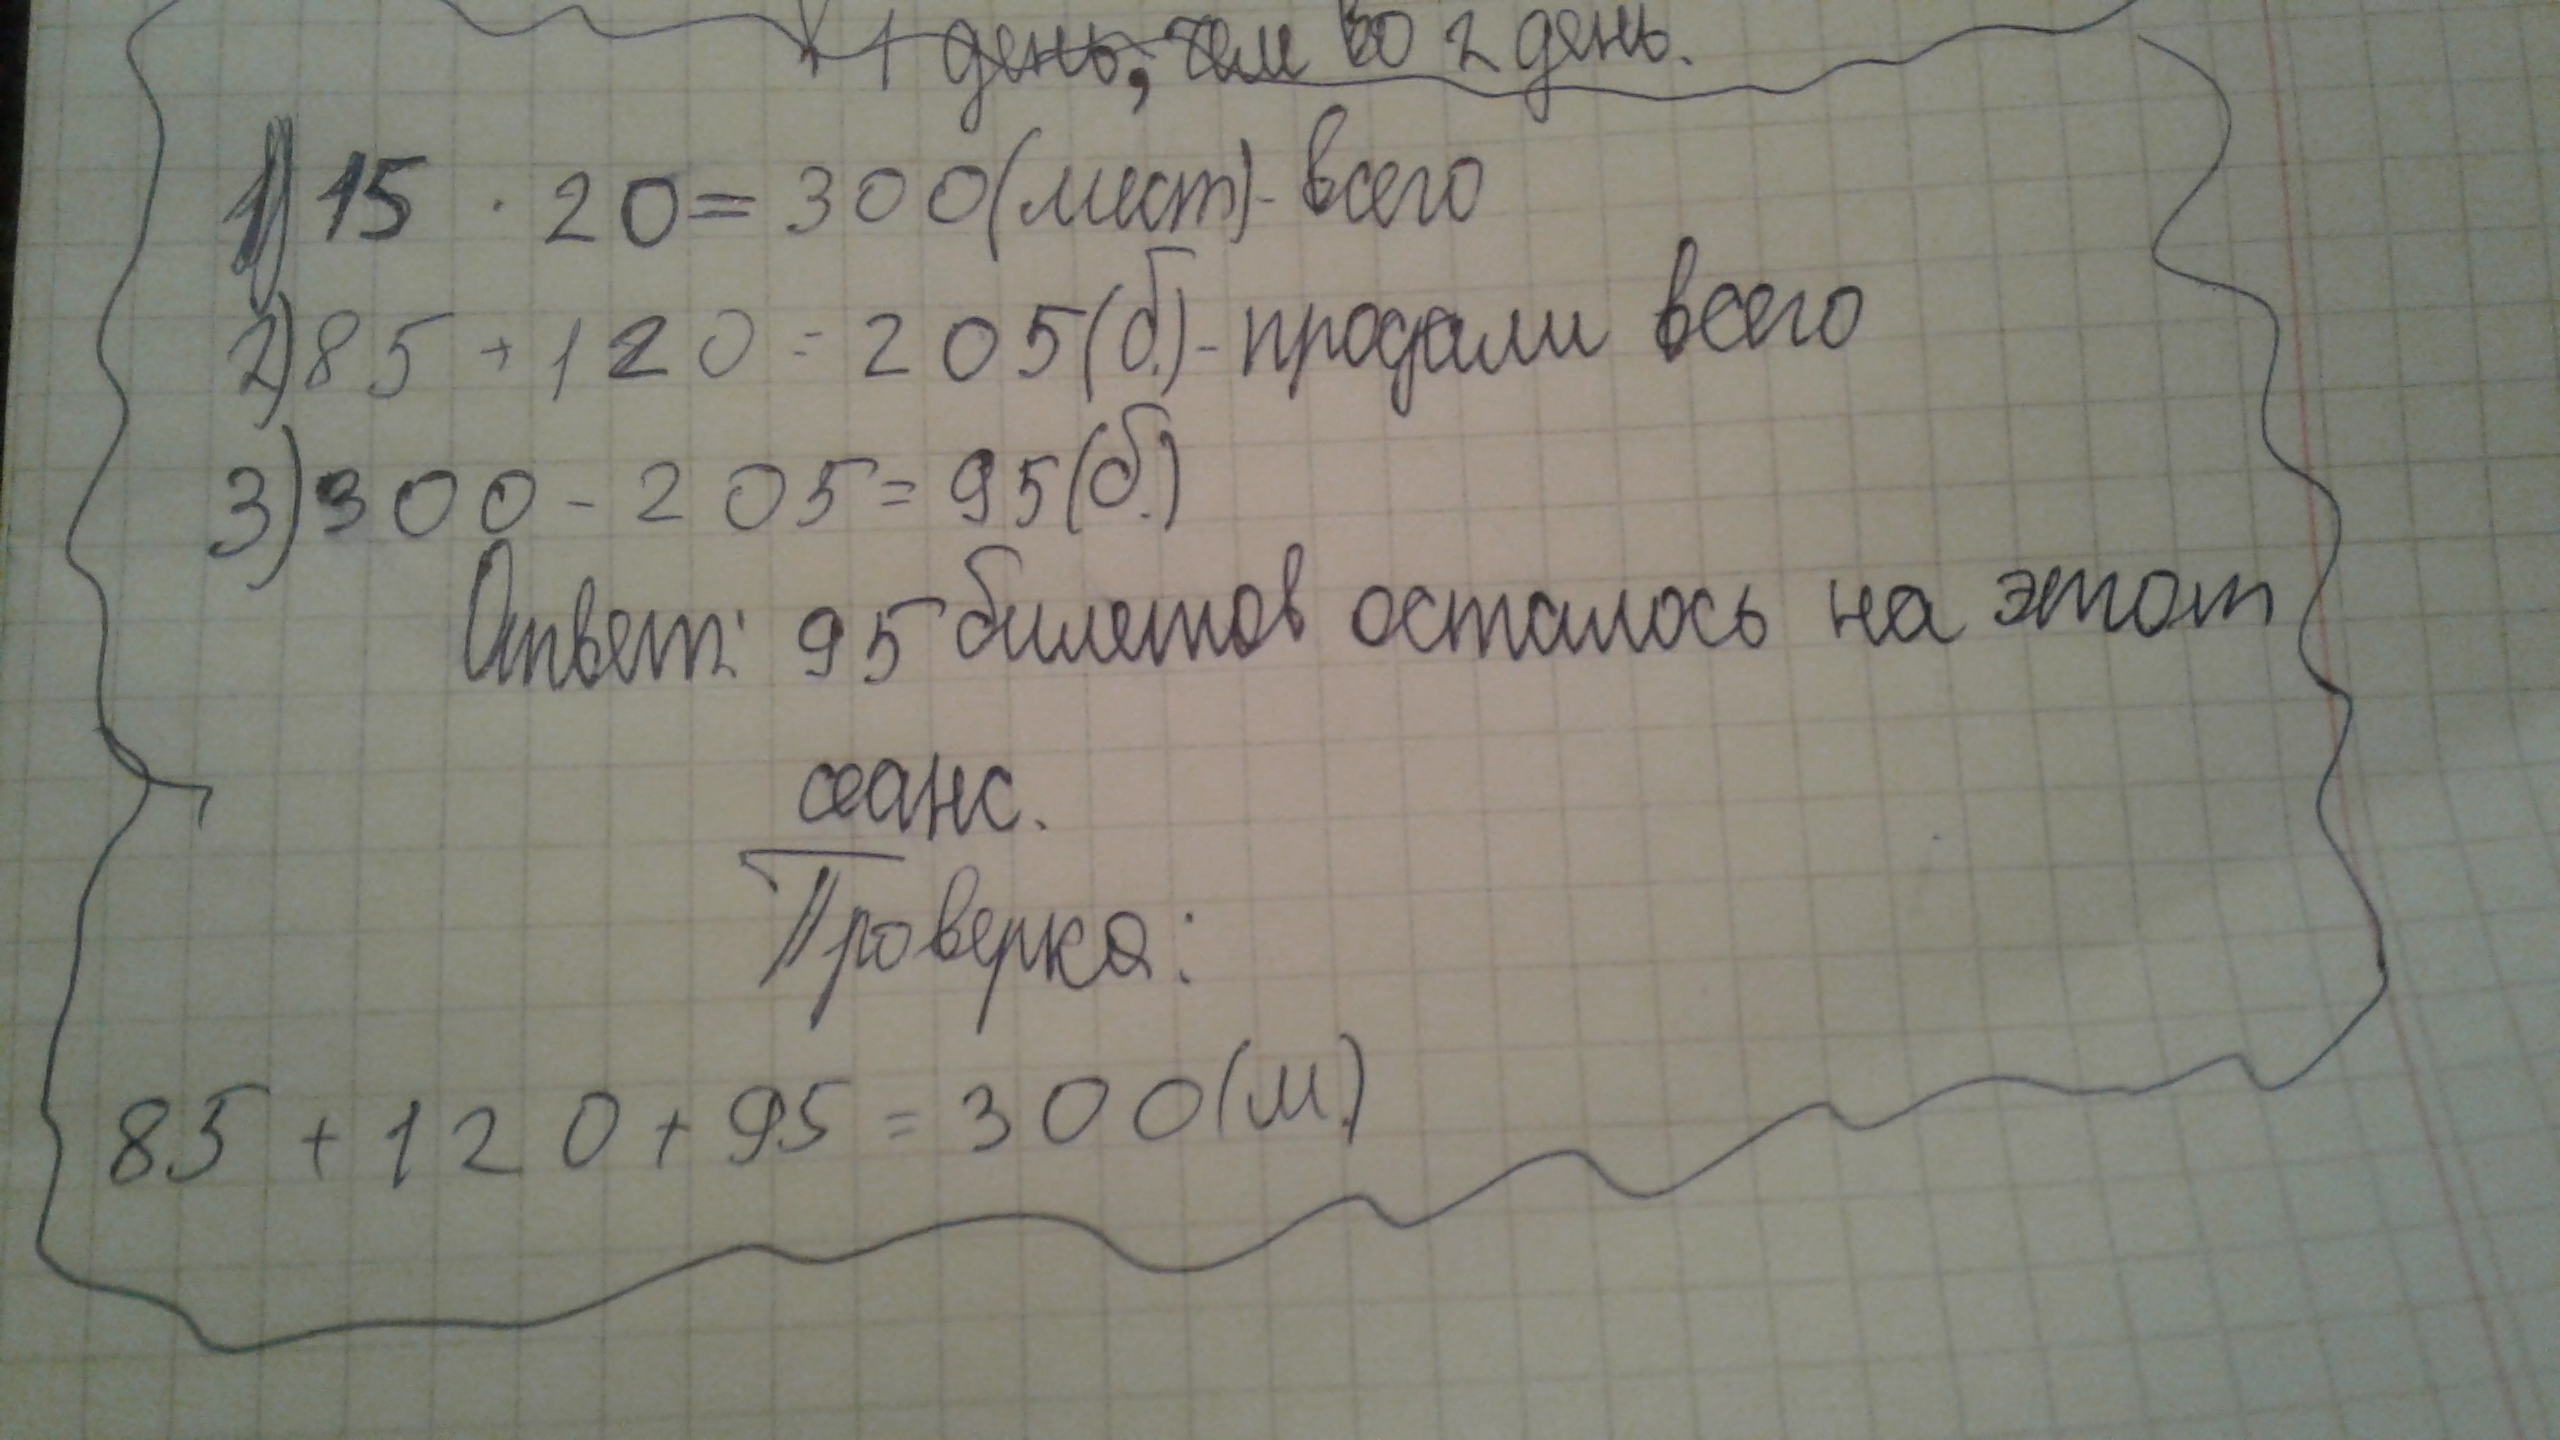 1 день, чем во 2 день.
1) 15 · 20 = 300 (мест) - всего
2) 85 + 120 = 205 (б.) - продали всего
3) 300 - 205 = 95 (б.)
Ответ: 95 билетов осталось на этот
сеанс.
Проверка:
85 + 120 + 95 = 300 (м.)